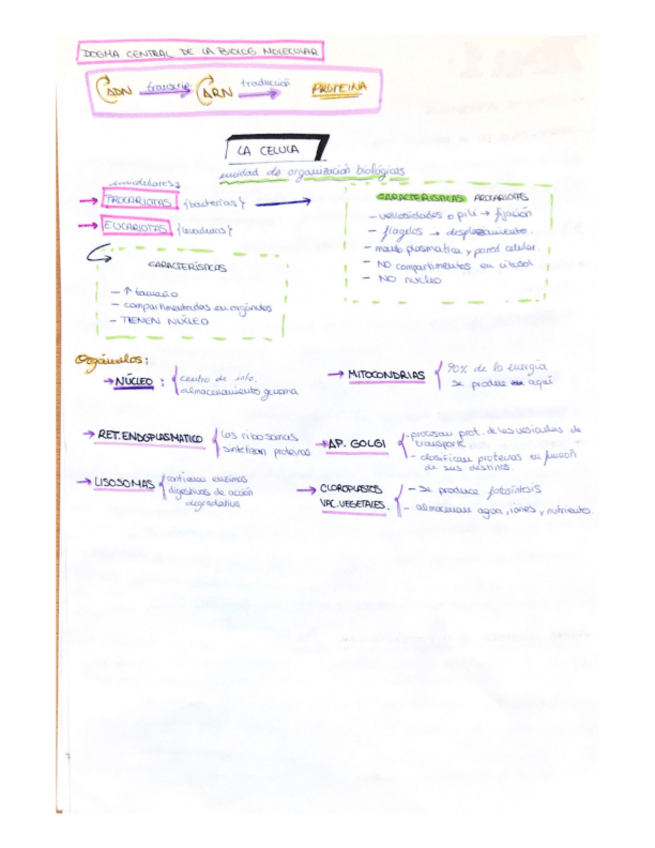 DOGMA CENTRAL DE LA BIOLOG MOLECULAR
ADN transcrip. ARN traducción PROTEINA
LA CELULA
unidad de organización biológicas
unicelulares
→ PROCARIOTAS {bacterias}
→ EUCARIOTAS {levaduras}
CARACTERÍSTICAS PROCARIOTAS
- vellosidades o pili → fijación
- flagelos → desplazamiento.
- memb. plasmatica y pared celular.
- NO compartimentos en citosol
- NO nucleo
CARACTERÍSTICAS
- ↑ tamaño
- compartimentadas en orgánulos
- TIENEN NÚCLEO
Orgánulos:
→ NÚCLEO : centro de info.
almacenamiento genoma
→ MITOCONDRIAS 90% de la energía
se produce aquí
→ RET. ENDOPLASMATICO Los ribosomas
sintetizan proteinas
→ AP. GOLGI - procesan prot. de las vesiculas de
transporte.
- clasifican proteinas en función
de sus destinos.
→ LISOSOMAS contienen enzimas
digestivas de acción
degradativa
→ CLOROPLASTOS - se produce fotosíntesis
VAC. VEGETALES. - almacenan agua, iones, y nutriento.